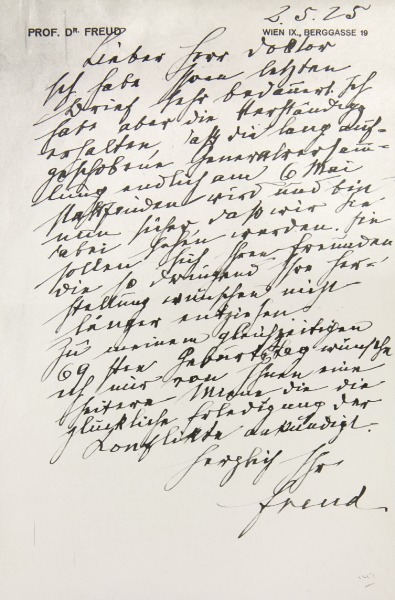 2. 5. 25
PROF. DR. FREUD WIEN IX., BERGGASSE 19
Lieber Herr Doktor
Ich habe Ihren letzten
Brief sehr bedauert. Ich
habe aber die Verständig
erhalten, daß die lang auf-
geschobene Generalversamm-
lung endlich am 6 Mai
stattfinden wird und bin
nun sicher, daß wir Sie
dabei sehen werden. Sie
sollen sich Ihren Freunden
die so dringend Ihre Her-
stellung wünschen nicht
länger entziehen.
Zu meinem gleichzeitigen
69 sten Geburtstag wünsche
ich mir von Ihnen eine
heitere Miene die die
glückliche Erledigung der
Konflikte ankündigt.
Herzlich Ihr
Freud